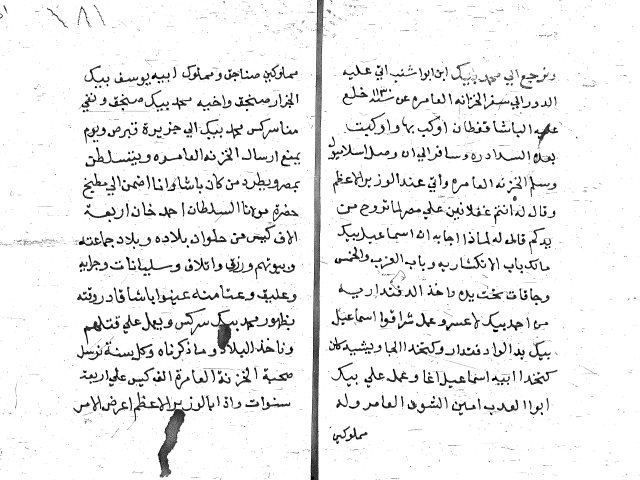 ونرجع الي محمد بيك ابن ابو اشنب اتي عليه
الدور الي سفر الخزانه العامره عن سنة ١١٣٠ خلع
عليه الباشا قفطان اوكب بها واوكبت
بعده السدادره وسافر الي ان وصل اسلامبول
وسلم الخزنه العامره واتي عند الوزير الاعظم
وقال له أنتم غفلانين علي مصر لما تروح من
يدكم قال له لماذا اجابه ان اسماعيل بيك
مالك باب الانكشاريه وباب العزب والخمس
وجاقات تحت يده واخذ الدفتداريه
من احمد بيك لاعسر وعمل شراقوا اسماعيل
بيك بدالو ادفتدار وكتخدا الجاويشيه كان
كتخدا ابيه اسماعيل اغا وعمل علي بيك
ابوا العدب امين الشون العامر وله
مملوكين
مملوكين صناجق ومملوك ابيه يوسف بيك
الجزار صنجق واخيه محمد بيك صنجق ونفي
منا سركس محمد بيك الي جزيرة قبرص ويوم
يمنع ارسال الخزنه العامره ويتسلطن
بمصر ويطرد من كان باشا وانا اضمن الي مطبخ
حضرة مولانا السلطان احمد خان اربعة
الاف كيس من حلوان بلاده وبلاد جماعته
وبيوتهم ورزق واتلاف وسليانات وجرايه
وعليق وعثامنه عينوا باشا قادر وقته
بظهور محمد بيك سركس ويعمل علي قتلهم
وناخذ البلاد وما ذكرناه وكل سنة نرسل
صحبة الخزنة العامرة الف كيس علي اربعة
سنوات واذا بالوزير الاعظم اعرض الامر